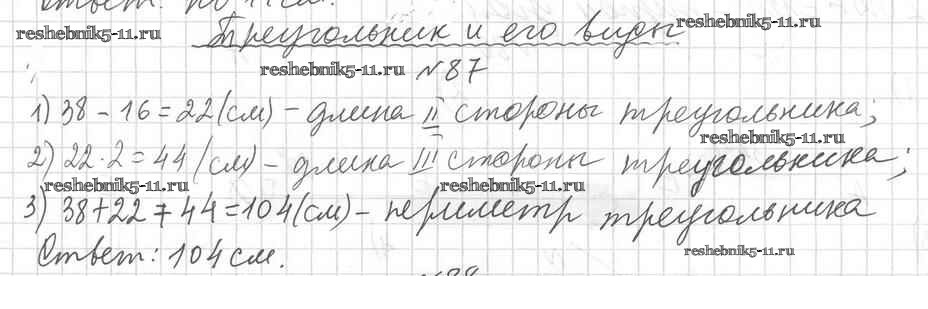 Ответ: по 17 см.
reshebnik5-11.ru
reshebnik5-11.ru
Треугольник и его виды
reshebnik5-11.ru
№87
1) 38 - 16 = 22 (см) - длина II стороны треугольника;
reshebnik5-11.ru
2) 22 · 2 = 44 (см) - длина III стороны треугольника;
reshebnik5-11.ru
reshebnik5-11.ru
3) 38 + 22 + 44 = 104 (см) - периметр треугольника
Ответ: 104 см.
reshebnik5-11.ru
№88